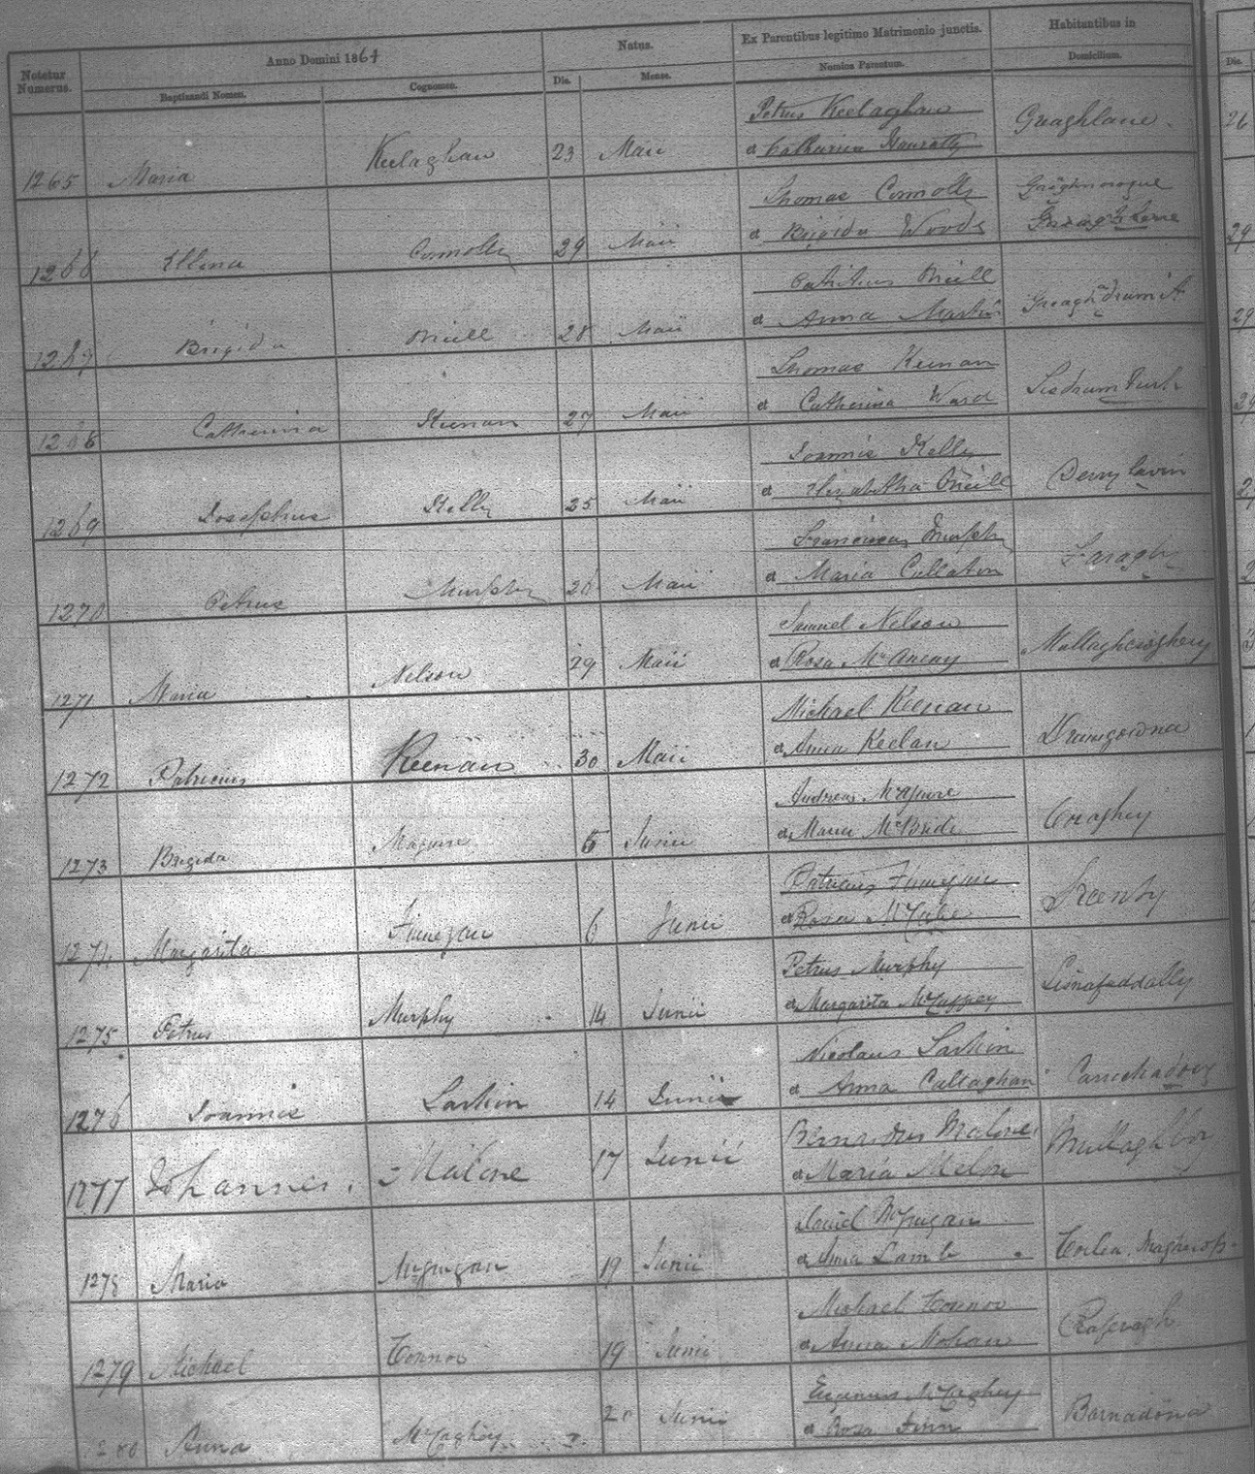 Notetur Numerus. Anno Domini 1864 Natus. Ex Parentibus legitimo Matrimonio junctis. Habitantibus in
Baptizandi Nomen. Cognomen. Die. Mense. Nomina Parentum. Domicilium. Die.
Petrus Keelaghan
1265 Maria Keelaghan 23 Maii et Catharina Guaghlane 26
Thomas Connolly
1266 Ellena Connolly 29 Maii et Brigida Woods 29
ONeill
1267 Brigida ONeill 28 Maii et Anna Martin 29
Thomas Keenan
1268 Catherina Keenan 27 Maii et Catherina Ward 29
Joannis Kelly
1269 Josephus Kelly 25 Maii et Elizabetha ONeill Derrylavin
Franciscus Murphy
1270 Petrus Murphy 26 Maii et Maria Callaton Faragh
Samuel Nelson
1271 Maria Nelson 29 Maii et Rosa Mullaghcroghery
Michael Keenan
1272 Patricius Keenan 30 Maii et Anna Keelan Drumgowna
Andreas McGuire
1273 Brigida Maguire 5 Junii et Maria McBride Coraghy
Patricius Finnegan
1274 Margarita Finnegan 6 Junii et Rosa McCabe
Petrus Murphy
1275 Petrus Murphy 14 Junii et Margarita McCaffrey Lisnafeddally
Nicolaus Larkin
1276 Joannis Larkin 14 Junii et Anna Callaghan
Bernardus Malone
1277 Johannes Malone 17 Junii et Maria Mullagh
Daniel McGuigan
1278 Maria McGuigan 19 Junii et Anna Lamb Corlea
Michael Connor
1279 Michael Connor 19 Junii et Anna Mohan
Eugenius McCaghey
280 Anna McCaghey 20 Junii et Rosa Finn Barnadona